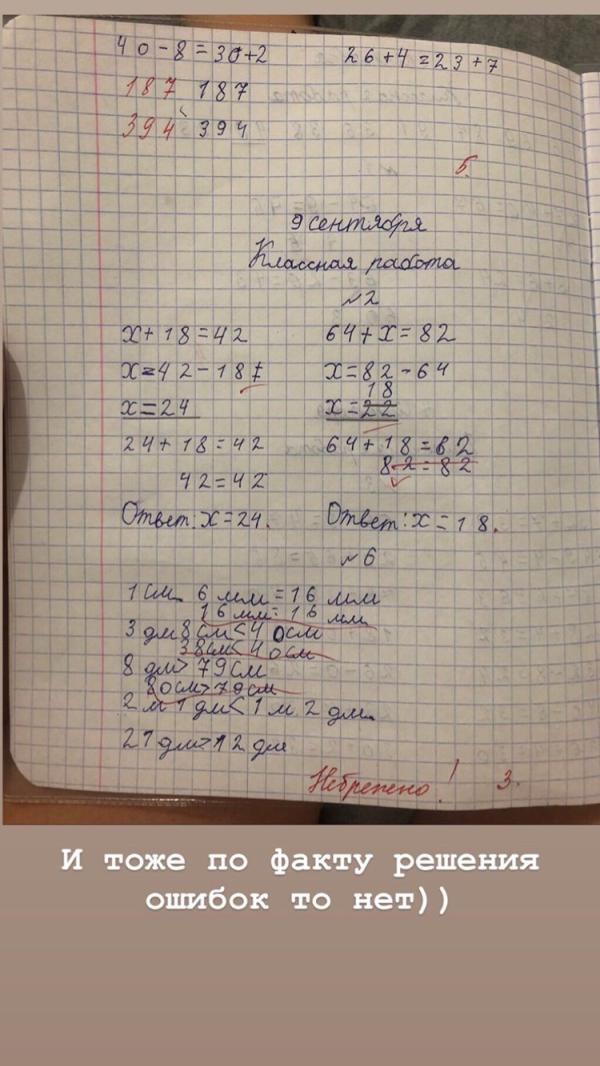 40-8=30+2 26+4=23+7
187 187
394 394
5.
9 сентября
Классная работа
№2
x+18=42 64+x=82
x=42-18 x=82-64
18
x=24 x=22
24+18=42 64+18=62
82=82
42=42
Ответ: x=24. Ответ: x=18.
№6
1 см 6 мм=16 мм
16 мм=16 мм
3 дм 8 см<40 см
38 см<40 см
8 дм>79 см
80 см>79 см
2 м 1 дм<1 м 2 дм.
21 дм>12 дм
Небрежно! 3.
И тоже по факту решения
ошибок то нет))